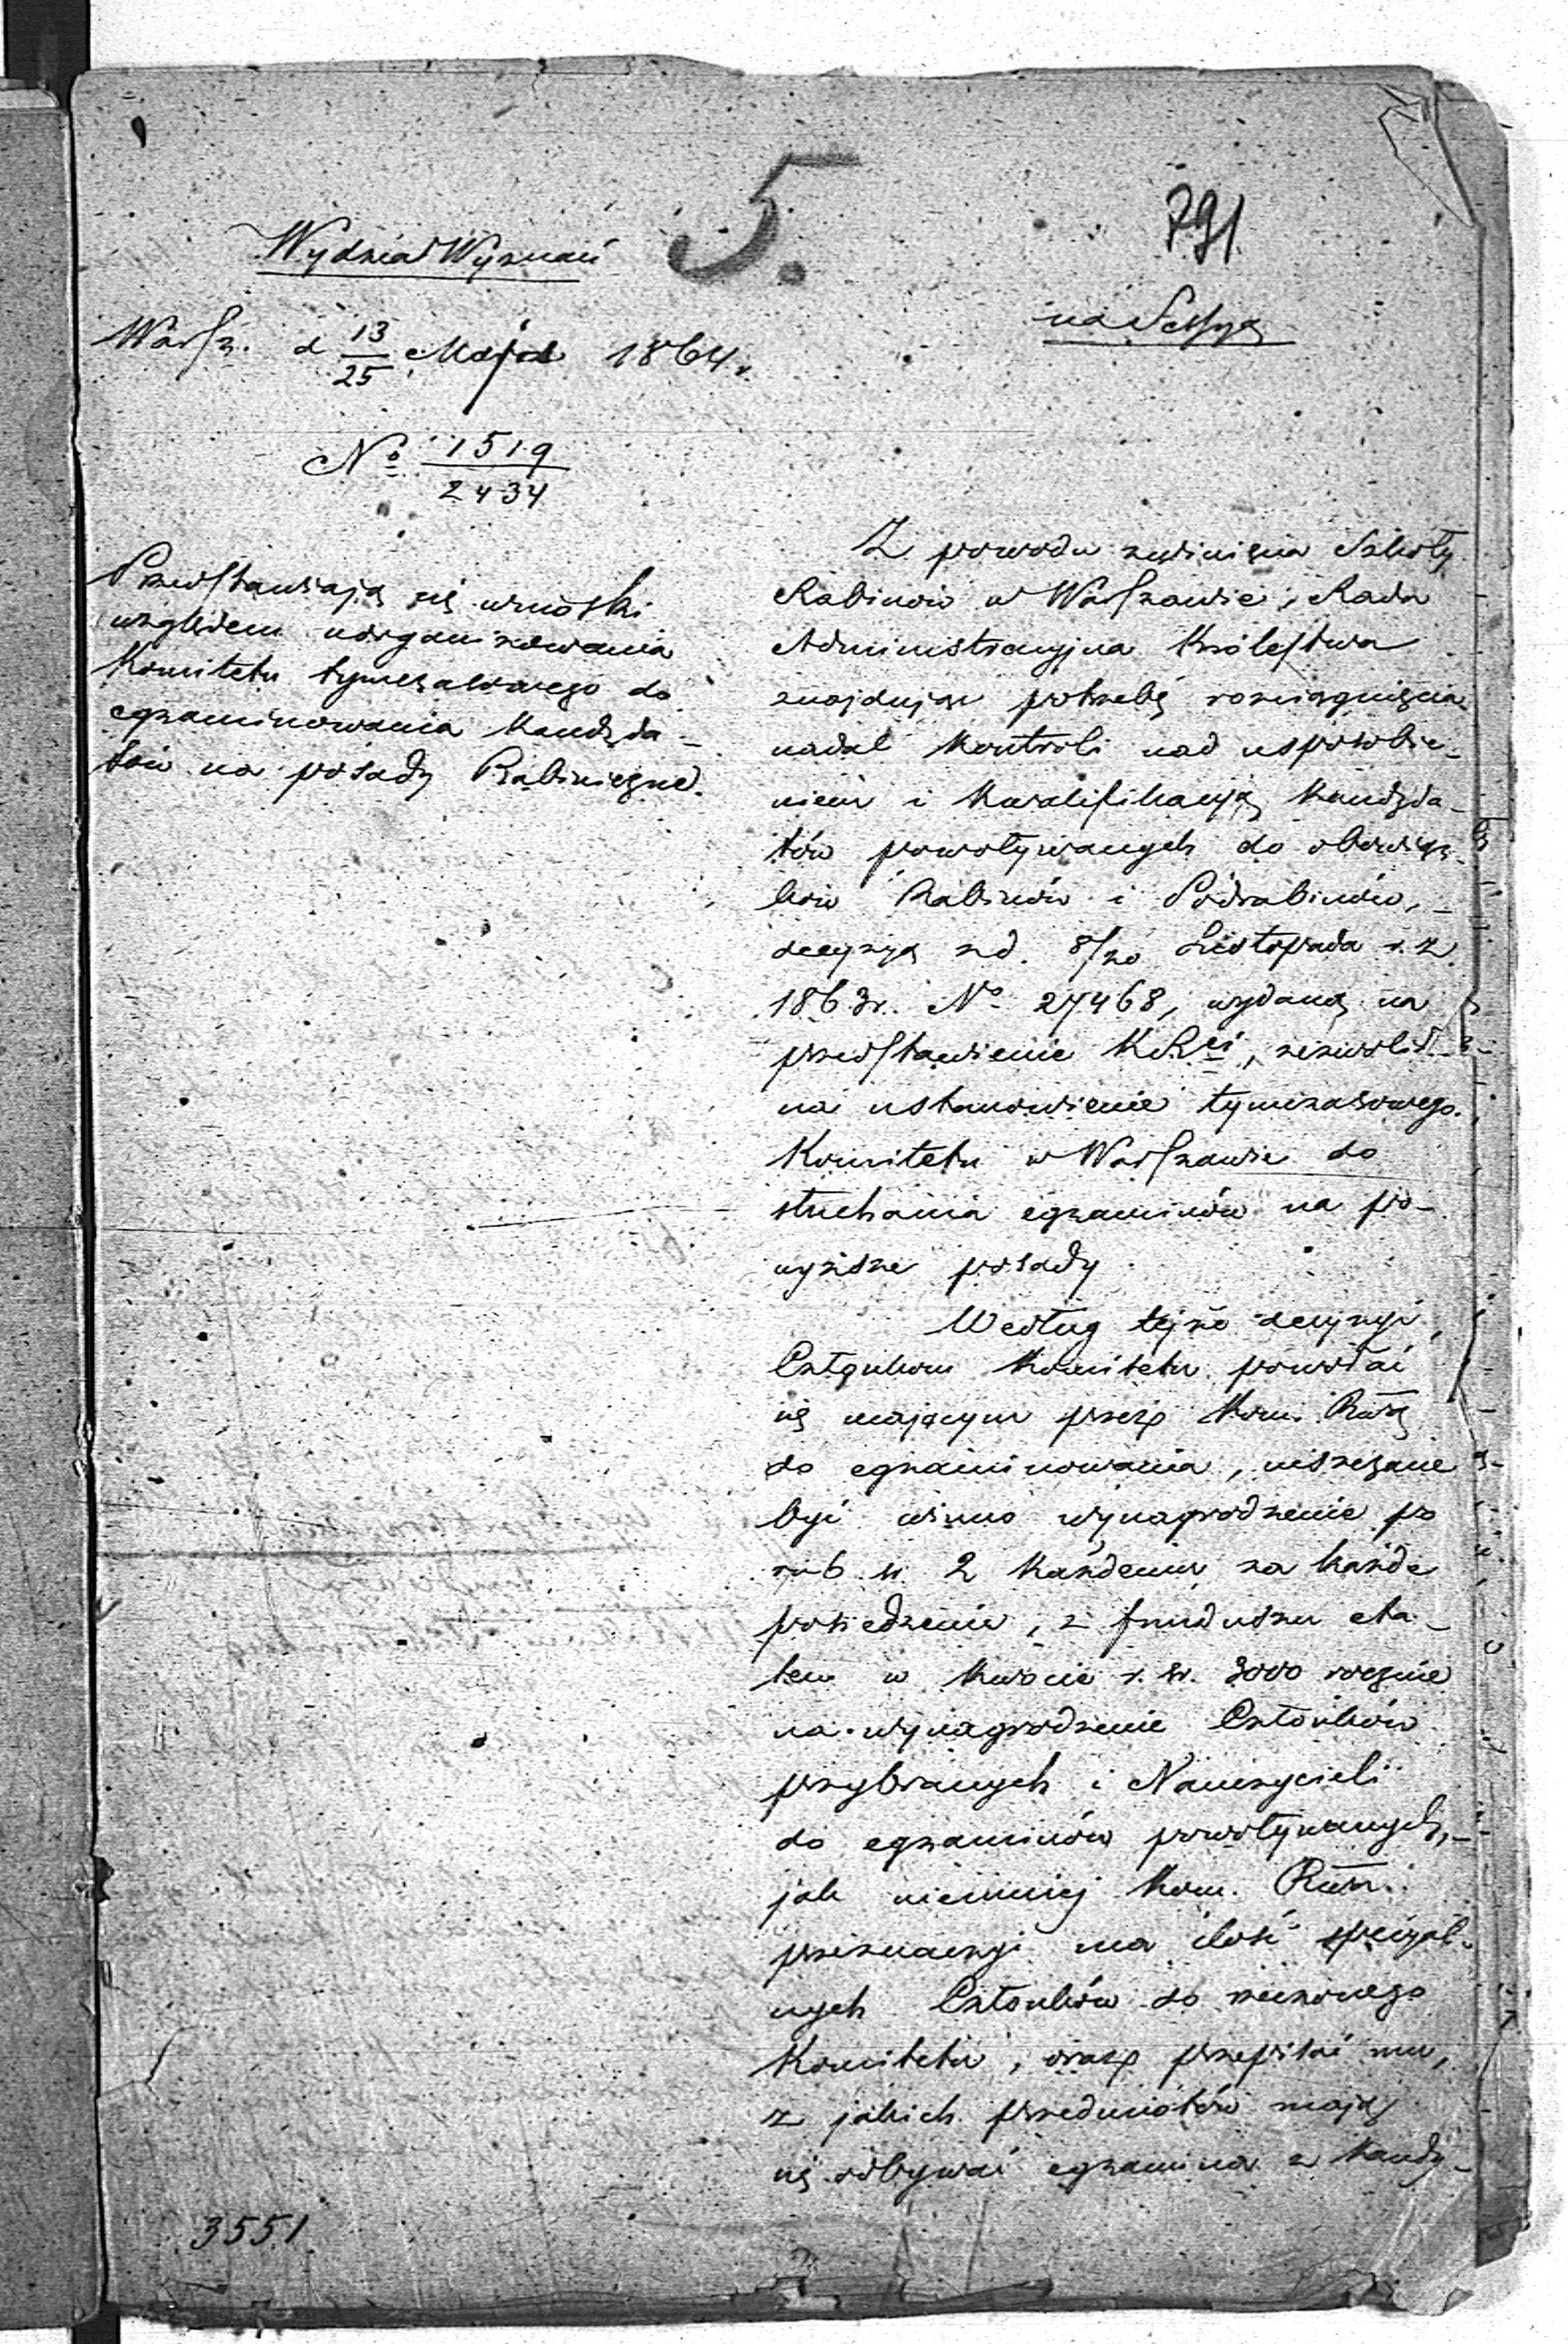 5.
791
Wydział Wyznań
na Sessyą
Warsz. d 13/25 Maja 1864 r.
Nº 1519/2434
Przedstawiają się wnioski
względem uorganizowania
Komitetu tymczasowego do
egzaminowania Kandyda-
tów na posady Rabiniczne.
Z powodu zwinięcia Szkoły
Rabinów w Warszawie, Rada
Administracyjna Królestwa
znajdując potrzebę rozciągnięcia
nadal kontroli nad usposobie-
niem i kwalifikacyą Kandyda-
tów powoływanych do obowiąz-
ków Rabinów i Podrabinów, -
decyzyą z d. 8/20 Listopada r. z.
1863 r. Nº 27468, wydaną na
przedstawienie K R, zezwolił
na ustanowienie tymczasowego
Komitetu w Warszawie do
słuchania egzaminów na po-
wyższe posady.
Według tejże decyzyi,
Członkom Komitetu powołać
się mającym przez Kom. Rzą
do egzaminowania, uiszczane
być winno wynagrodzenie po
rub. sr. 2 każdemu za każde
posiedzenie, z funduszu eta-
tem w kwocie r. sr. 3000 rocznie
na wynagrodzenie Członków
przybranych i Nauczycieli
do egzaminów powoływanych, -
jak niemniej Kom. Rząd.
przeznaczyć ma ilość specyal-
nych Członków do rzeczonego
Komitetu, oraz przepisać mu,
z jakich przedmiotów mają
się odbywać egzamina z Kandy-
3551